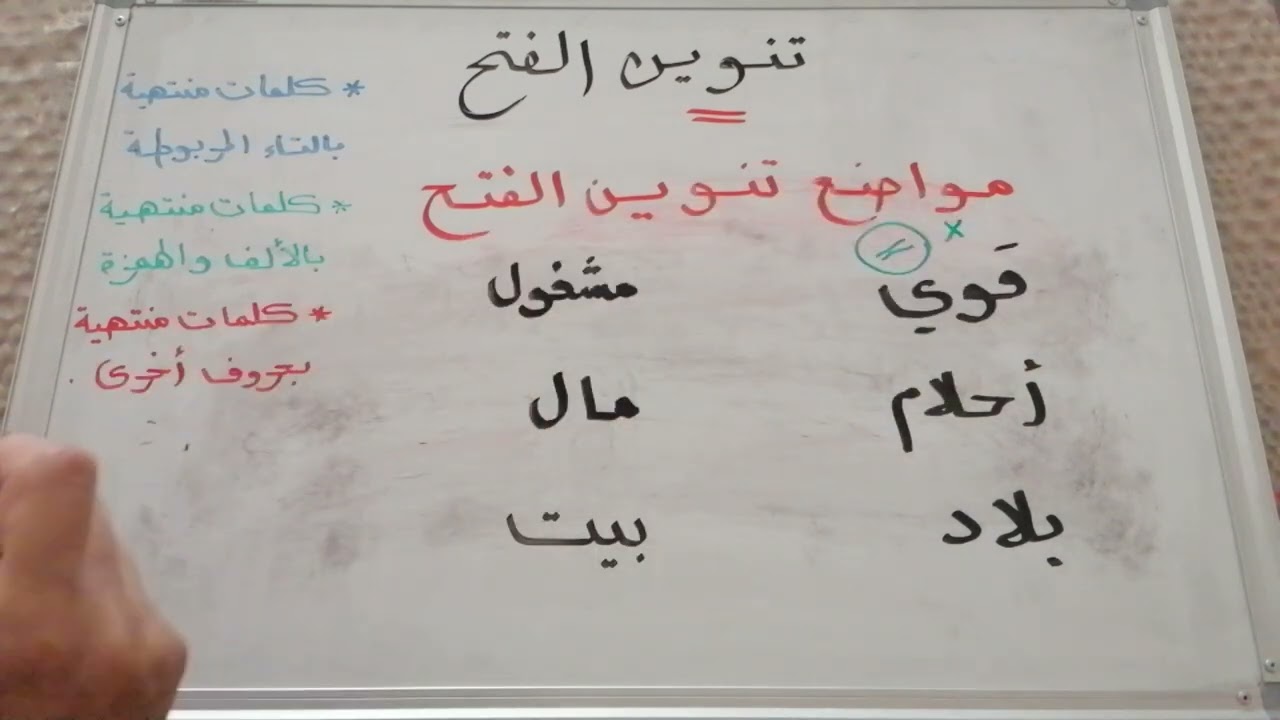 تنوين الفتح
مواضع تنوين الفتح
قَوي
مشغول
أحلام
مال
بلاد
بيت
* كلمات منتهية
بالتاء المربوطة
* كلمات منتهية
بالألف والهمزة
* كلمات منتهية
بحروف أخرى .